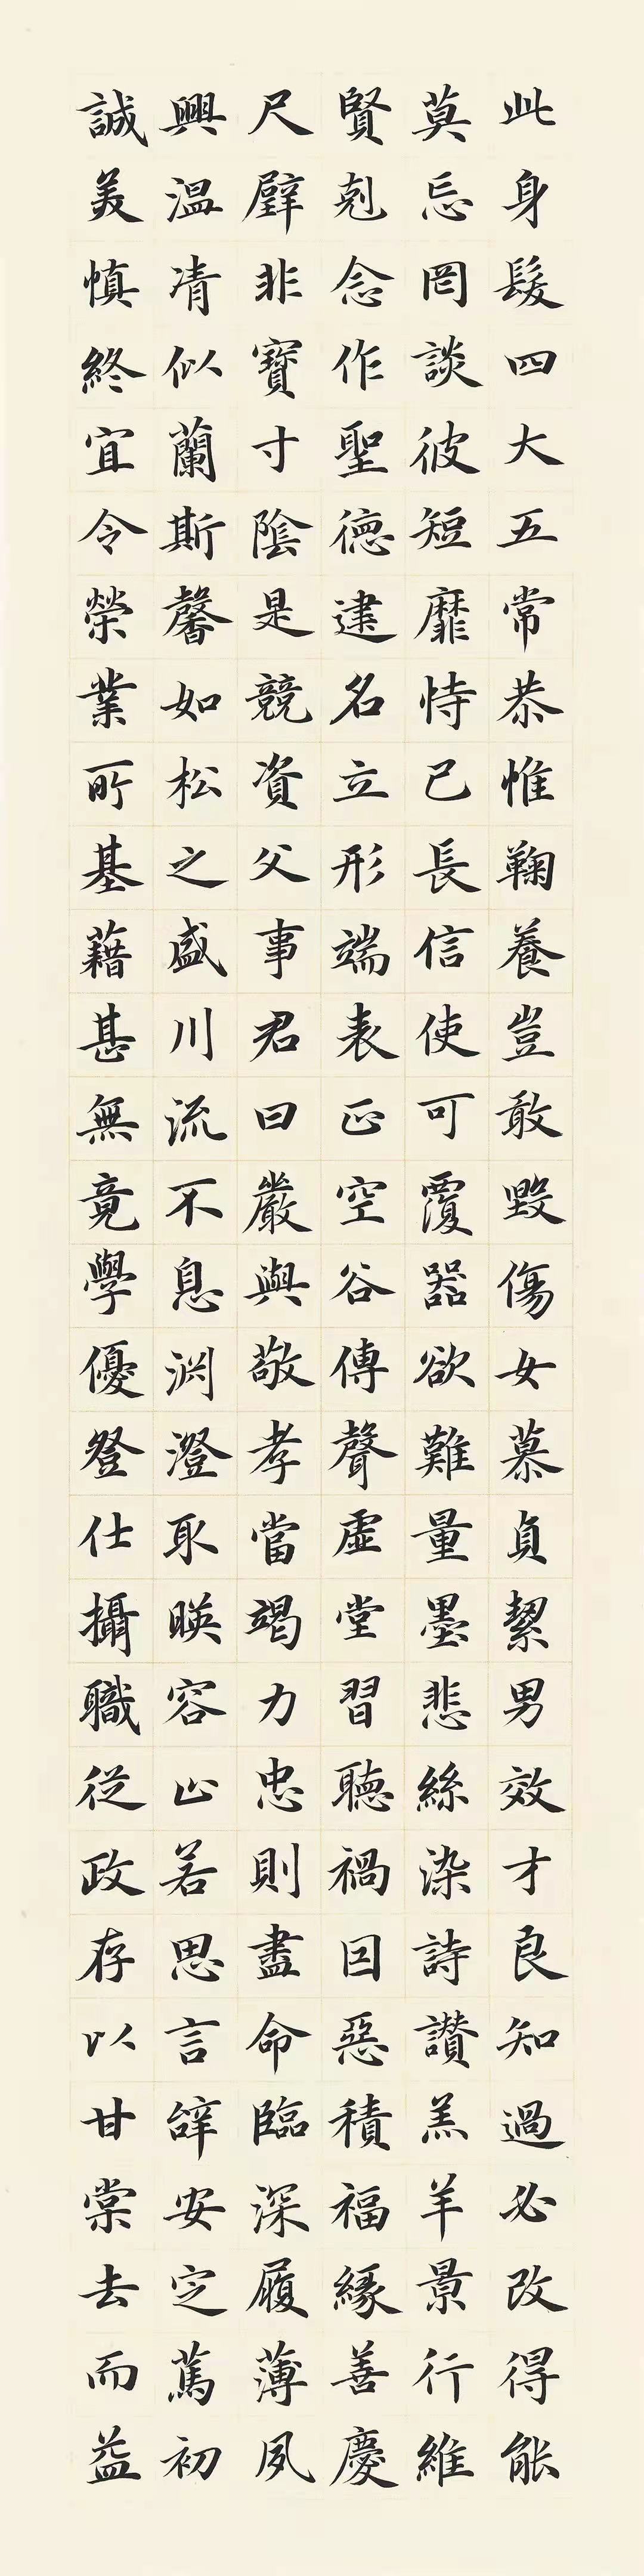 此身髮四大五常恭惟鞠養豈敢毀傷女慕貞絜男效才良知過必改得能
莫忘罔談彼短靡恃己長信使可覆器欲難量墨悲絲染詩讚羔羊景行維
賢剋念作聖德建名立形端表正空谷傳聲虛堂習聽禍因惡積福緣善慶
尺璧非寶寸陰是競資父事君曰嚴與敬孝當竭力忠則盡命臨深履薄夙
興温凊似蘭斯馨如松之盛川流不息渕澄取暎容止若思言辭安定篤初
誠美慎終宜令榮業所基藉甚無竟學優登仕攝職從政存以甘棠去而益